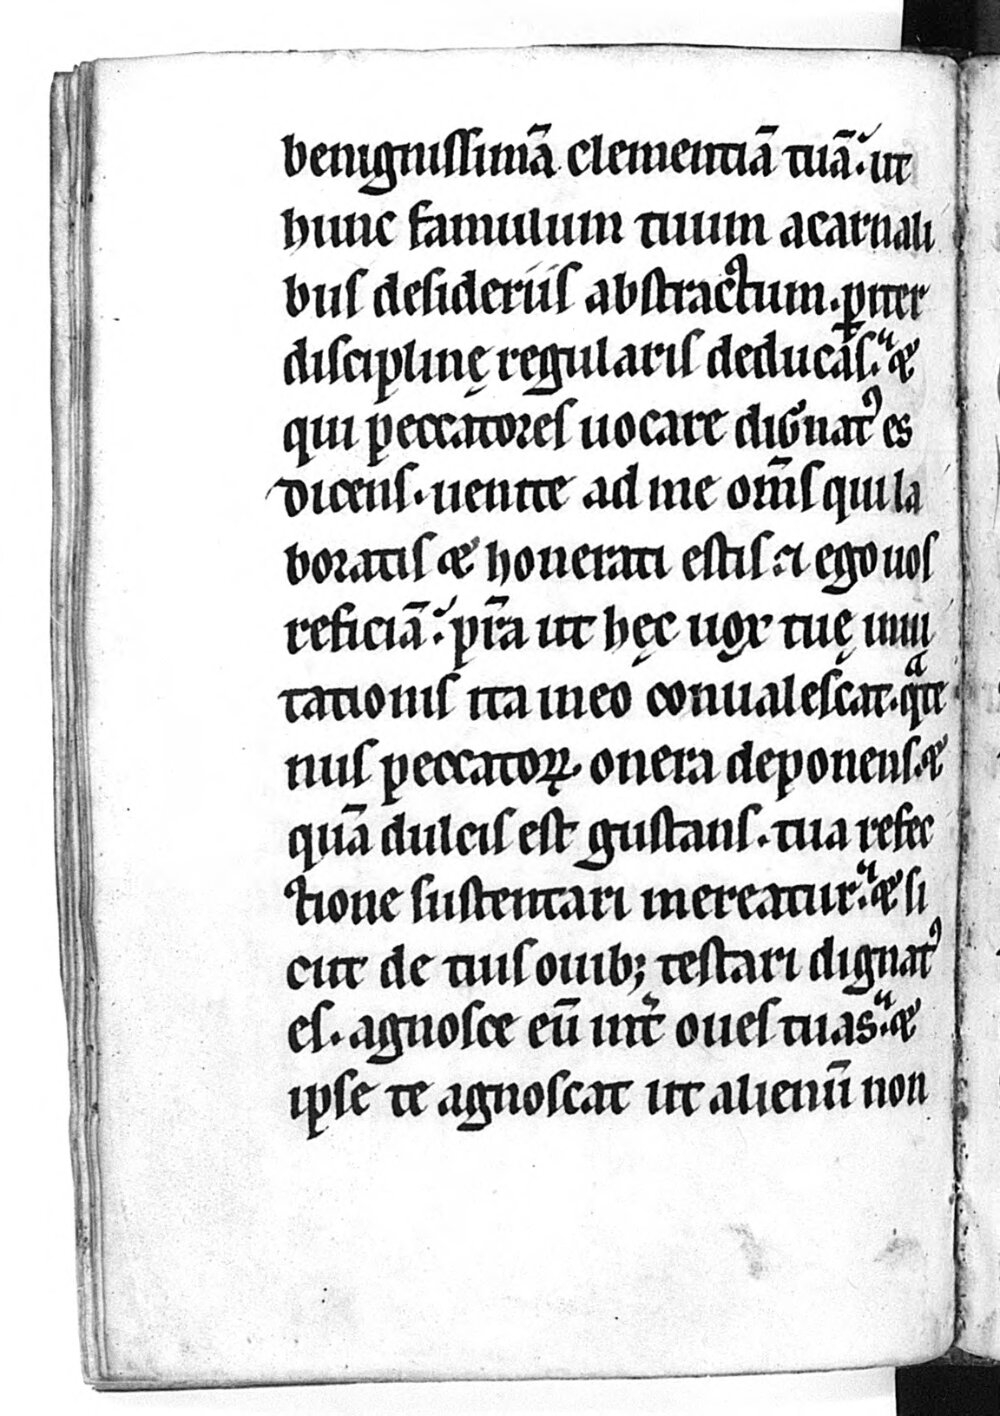 benignissimā clementiā tuā. ut
hunc famulum tuum acarnali
bus desideriis abstractum. ꝑ iter
disciplinę regularis deducās. &
qui peccatores uocare dignatꝰ es
dicens. uenite ad me om̄s qui la
boratis & honerati estis. ⁊ ego uos
reficiā. p̄ra ut hęc uox tuę inui
tationis ita ineo conualescat. qͣte
nus peccatoꝝ onera deponens. &
quā dulcis est gustans. tua refec
tione sustentari mereatur. & si
cut de tuis ouibꝫ testari dignatꝰ
es. agnosce eū int̄ oues tuas. &
ipse te agnoscat ut alienū non